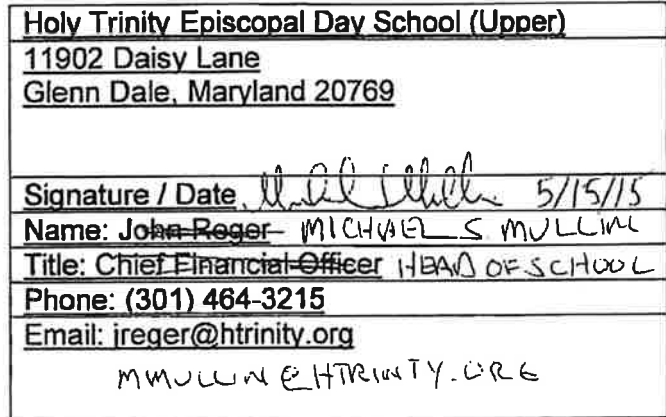 Holy Trinity Episcopal Day School (Upper)
11902 Daisy Lane
Glenn Dale, Maryland 20769
Signature / Date 5/15/15
Name: John Reger MICHAEL S MULLIN
Title: Chief Financial Officer HEAD OF SCHOOL
Phone: (301) 464-3215
Email: jreger@htrinity.org
MMULLIN@HTRINITY.ORG